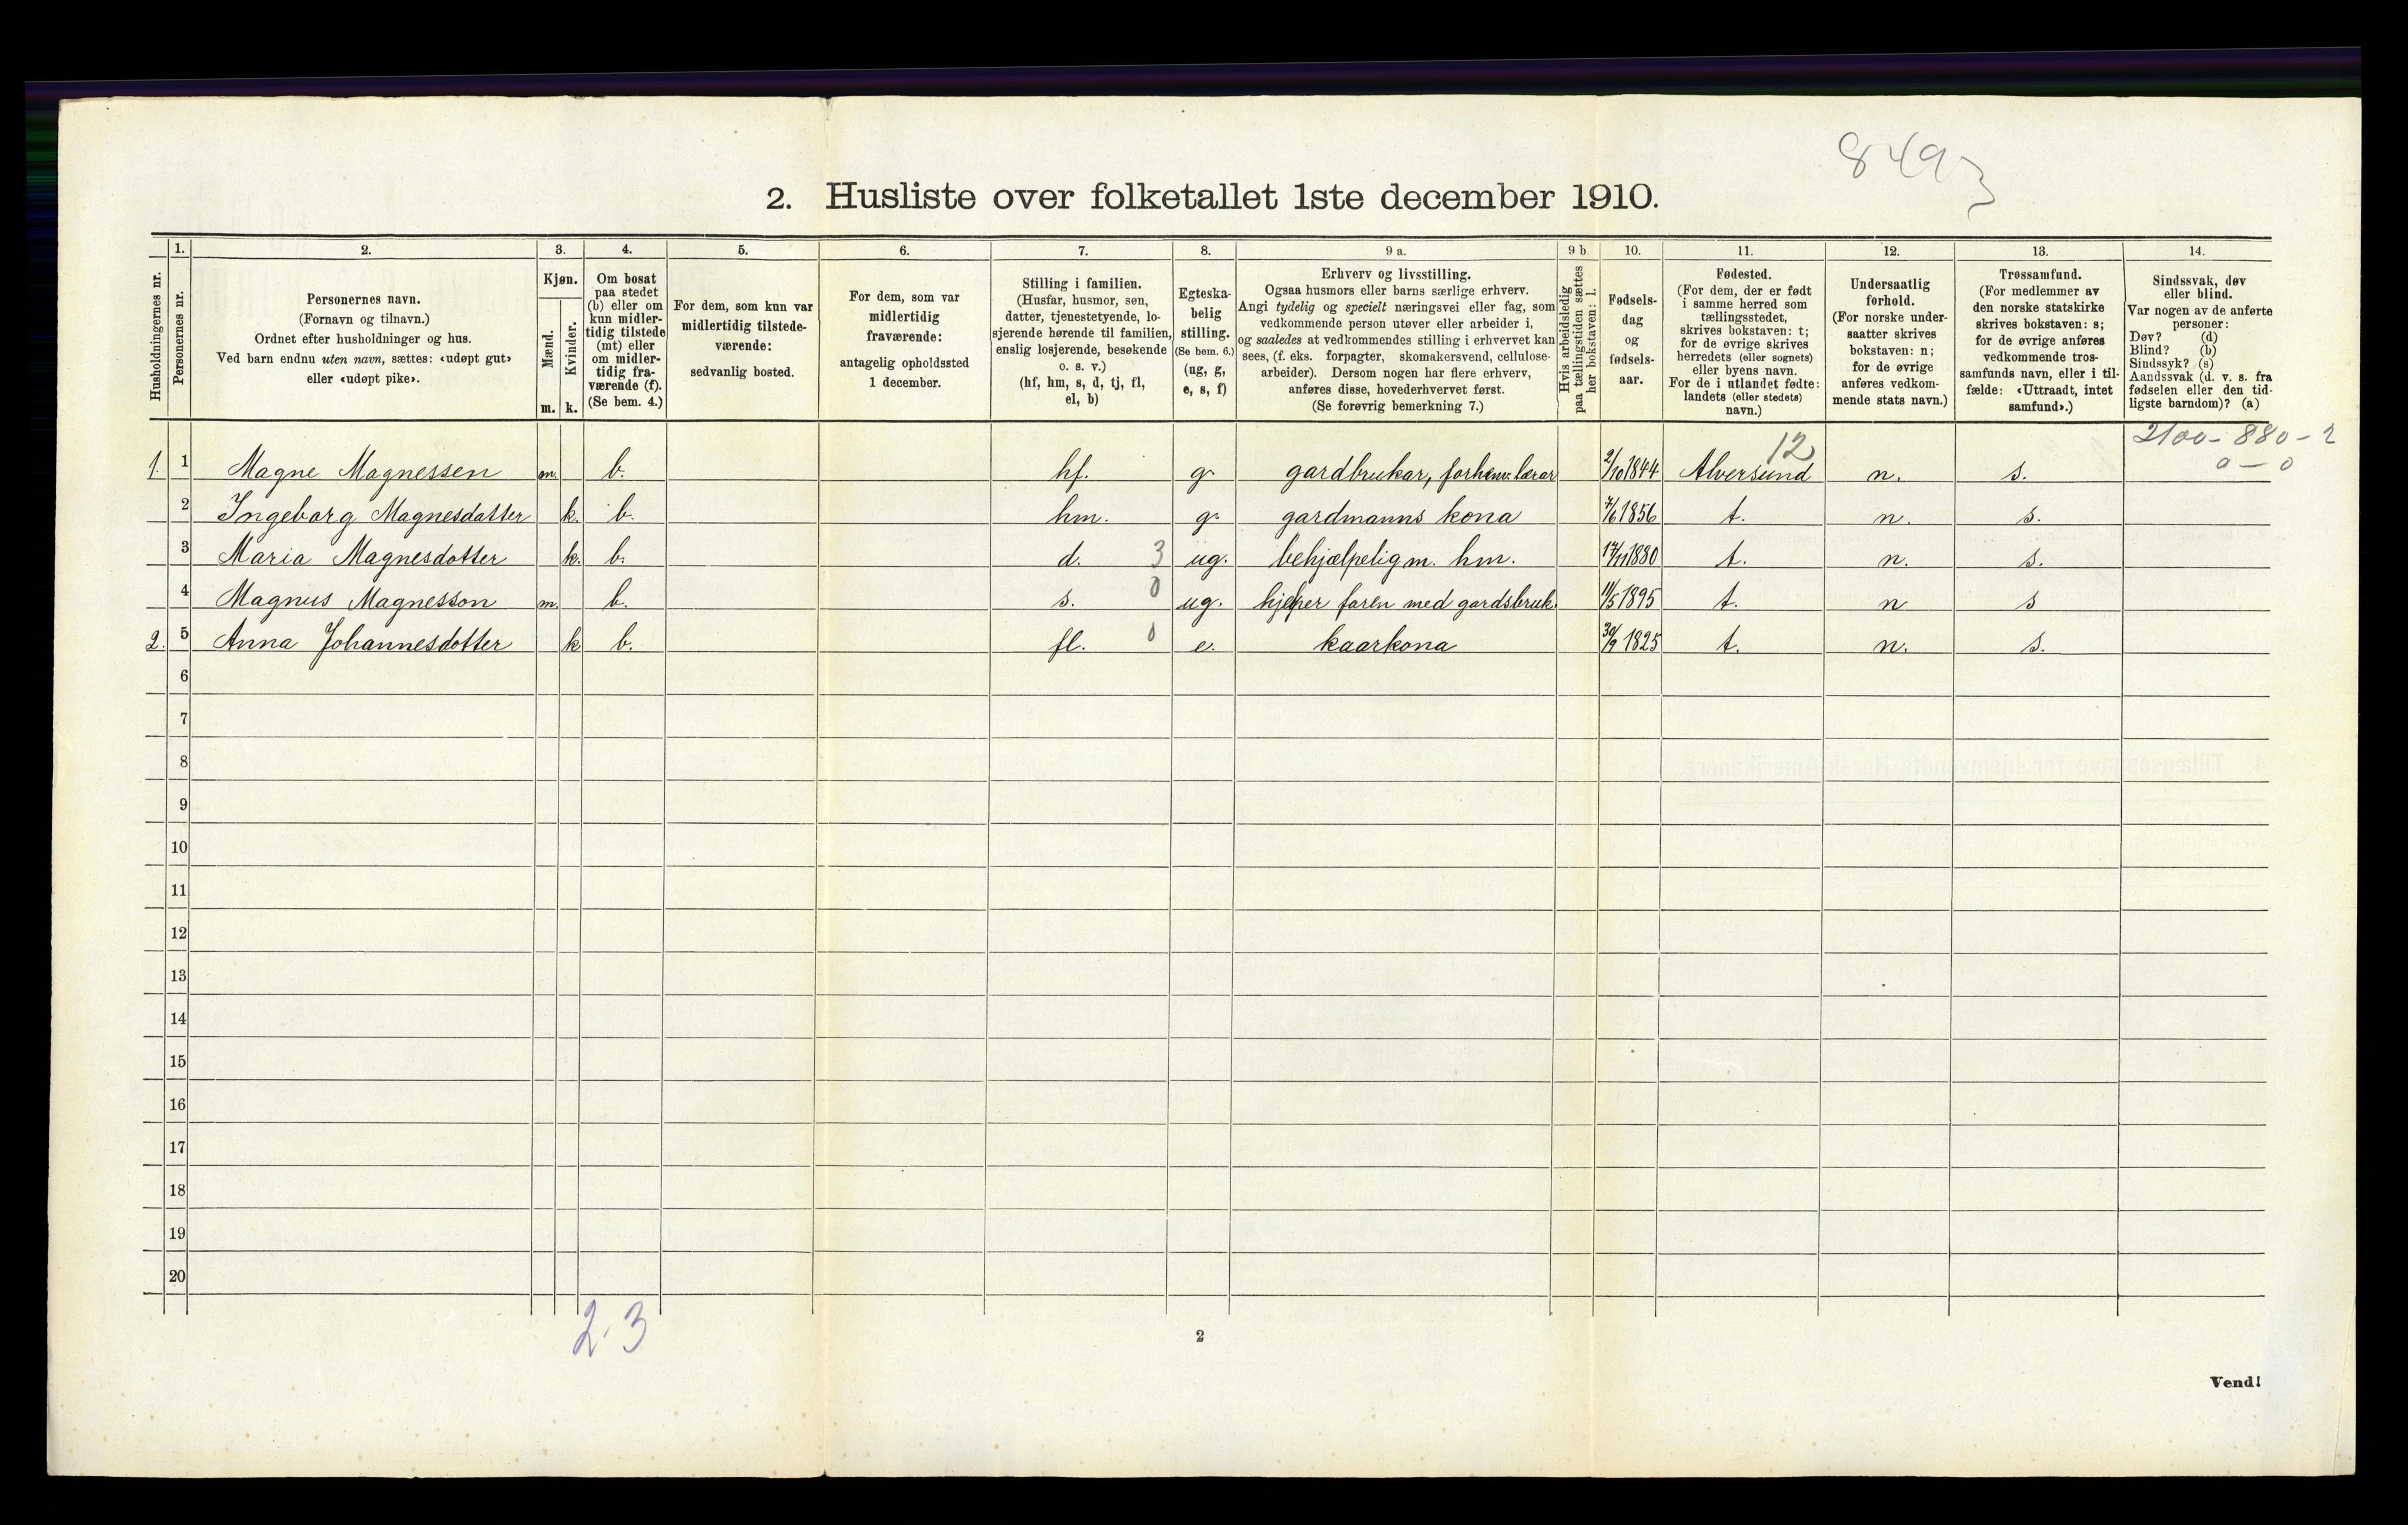 8493
2. Husliste over folketallet 1ste december 1910.
1. 2. 3. 4. 5. 6. 7. 8. 9 a. 9 b. 10. 11. 12. 13. 14.
Husholdningernes nr.
Personernes nr.
Personernes navn.
(Fornavn og tilnavn.)
Ordnet efter husholdninger og hus.
Ved barn endnu uten navn, sættes: «udøpt gut»
eller «udøpt pike».
Kjøn.
Mænd.
Kvinder.
m. k.
Om bosat
paa stedet
(b) eller om
kun midler-
tidig tilstede
(mt) eller
om midler-
tidig fra-
værende (f).
(Se bem. 4.)
For dem, som kun var
midlertidig tilstede-
værende:
sedvanlig bosted.
For dem, som var
midlertidig
fraværende:
antagelig opholdssted
1 december.
Stilling i familien.
(Husfar, husmor, søn,
datter, tjenestetyende, lo-
sjerende hørende til familien,
enslig losjerende, besøkende
o. s. v.)
(hf, hm, s, d, tj, fl,
el, b)
Egteska-
belig
stilling.
(Se bem. 6.)
(ug, g,
e, s, f)
Erhverv og livsstilling.
Ogsaa husmors eller barns særlige erhverv.
Angi tydelig og specielt næringsvei eller fag, som
vedkommende person utøver eller arbeider i,
og saaledes at vedkommendes stilling i erhvervet kan
sees, (f. eks. forpagter, skomakersvend, cellulose-
arbeider). Dersom nogen har flere erhverv,
anføres disse, hovederhvervet først.
(Se forøvrig bemerkning 7.)
Hvis arbeidsledig
paa tællingstiden sættes
her bokstaven: l.
Fødsels-
dag
og
fødsels-
aar.
Fødested.
(For dem, der er født
i samme herred som
tællingsstedet,
skrives bokstaven: t;
for de øvrige skrives
herredets (eller sognets)
eller byens navn.
For de i utlandet fødte:
landets (eller stedets)
navn.)
Undersaatlig
forhold.
(For norske under-
saatter skrives
bokstaven: n;
for de øvrige
anføres vedkom-
mende stats navn.)
Trossamfund.
(For medlemmer av
den norske statskirke
skrives bokstaven: s;
for de øvrige anføres
vedkommende tros-
samfunds navn, eller i til-
fælde: «Uttraadt, intet
samfund».)
Sindssvak, døv
eller blind.
Var nogen av de anførte
personer:
Døv? (d)
Blind? (b)
Sindssyk? (s)
Aandssvak (d. v. s. fra
fødselen eller den tid-
ligste barndom)? (a)
12 2100-880-2
0-0
1. 1 Magne Magnessen m. b. hf. g. gardbrukar, forhenv. lærar 2/10 1844 Alversund n. s.
2 Ingeborg Magnesdatter k. b. hm. g. gardmanns kona 7/6 1856 t. n. s.
3 Maria Magnesdotter k. b. d. 3 ug. behjælpelig m. hm. 17/11 1880 t. n. s.
4 Magnus Magnesson m. b. s. 0 ug. hjelper faren med gardsbruk. 11/5 1895 t. n s
2. 5 Anna Johannesdotter k b. fl. 0 e. kaarkona 30/9 1825 t. n. s.
6
7
8
9
10
11
12
13
14
15
16
17
18
19
20
2.3
2
Vend!